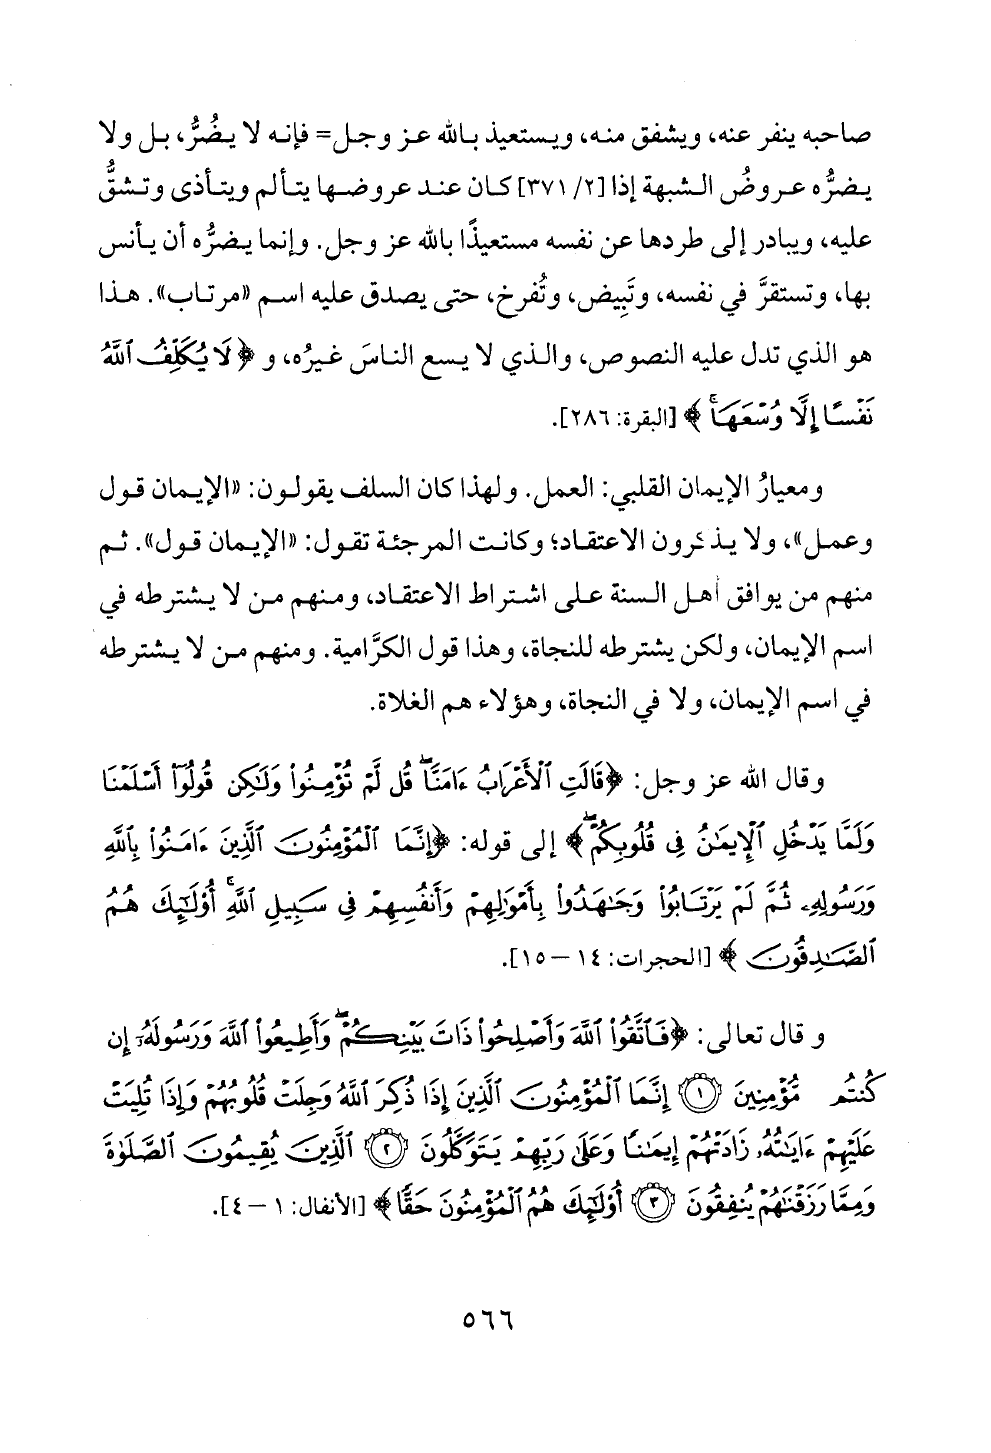 صاحبه ينفر عنه، ويشفق منه، ويستعيذ بالله عز وجل= فإنه لا يضُرُّ، بل ولا
يضرُّه عروضُ الشبهة إذا [٢/ ٣٧١] كان عند عروضها يتألم ويتأذى وتشقُّ
عليه، ويبادر إلى طردها عن نفسه مستعيذًا بالله عز وجل. وإنما يضرُّه أن يأنس
بها، وتستقرَّ في نفسه، وتَبِيض، وتُفرخ، حتى يصدق عليه اسم «مرتاب». هذا
هو الذي تدل عليه النصوص، والذي لا يسع الناسَ غيرُه، و ﴿لَا يُكَلِّفُ ٱللَّهُ
نَفۡسًا إِلَّا وُسۡعَهَاۚ﴾ [البقرة: ٢٨٦].
ومعيارُ الإيمان القلبي: العمل. ولهذا كان السلف يقولون: «الإيمان قول
وعمل»، ولا يذكرون الاعتقاد؛ وكانت المرجئة تقول: «الإيمان قول». ثم
منهم من يوافق أهل السنة على اشتراط الاعتقاد، ومنهم من لا يشترطه في
اسم الإيمان، ولكن يشترطه للنجاة، وهذا قول الكرَّامية. ومنهم من لا يشترطه
في اسم الإيمان، ولا في النجاة، وهؤلاء هم الغلاة.
وقال الله عز وجل: ﴿قَالَتِ ٱلۡأَعۡرَابُ ءَامَنَّاۖ قُل لَّمۡ تُؤۡمِنُواْ وَلَٰكِن قُولُوٓاْ أَسۡلَمۡنَا
وَلَمَّا يَدۡخُلِ ٱلۡإِيمَٰنُ فِي قُلُوبِكُمۡۖ﴾ إلى قوله: ﴿إِنَّمَا ٱلۡمُؤۡمِنُونَ ٱلَّذِينَ ءَامَنُواْ بِٱللَّهِ
وَرَسُولِهِۦ ثُمَّ لَمۡ يَرۡتَابُواْ وَجَٰهَدُواْ بِأَمۡوَٰلِهِمۡ وَأَنفُسِهِمۡ فِي سَبِيلِ ٱللَّهِۚ أُوْلَٰٓئِكَ هُمُ
ٱلصَّٰدِقُونَ﴾ [الحجرات: ١٤ – ١٥].
و قال تعالى: ﴿فَٱتَّقُواْ ٱللَّهَ وَأَصۡلِحُواْ ذَاتَ بَيۡنِكُمۡۖ وَأَطِيعُواْ ٱللَّهَ وَرَسُولَهُۥٓ إِن
كُنتُم مُّؤۡمِنِينَ ١ إِنَّمَا ٱلۡمُؤۡمِنُونَ ٱلَّذِينَ إِذَا ذُكِرَ ٱللَّهُ وَجِلَتۡ قُلُوبُهُمۡ وَإِذَا تُلِيَتۡ
عَلَيۡهِمۡ ءَايَٰتُهُۥ زَادَتۡهُمۡ إِيمَٰنٗا وَعَلَىٰ رَبِّهِمۡ يَتَوَكَّلُونَ ٢ ٱلَّذِينَ يُقِيمُونَ ٱلصَّلَوٰةَ
وَمِمَّا رَزَقۡنَٰهُمۡ يُنفِقُونَ ٣ أُوْلَٰٓئِكَ هُمُ ٱلۡمُؤۡمِنُونَ حَقّٗا﴾ [الأنفال: ١ – ٤].
٥٦٦